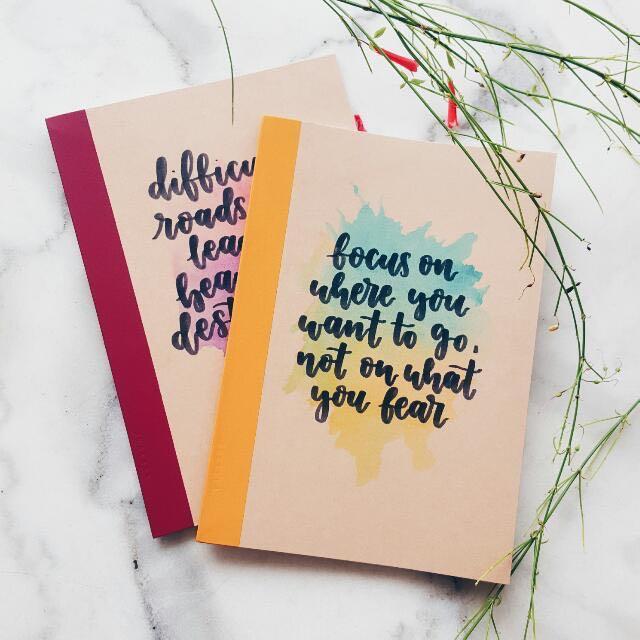 difficu
roads
lea
dest
focus on
where you
want to go,
not on what
you fear